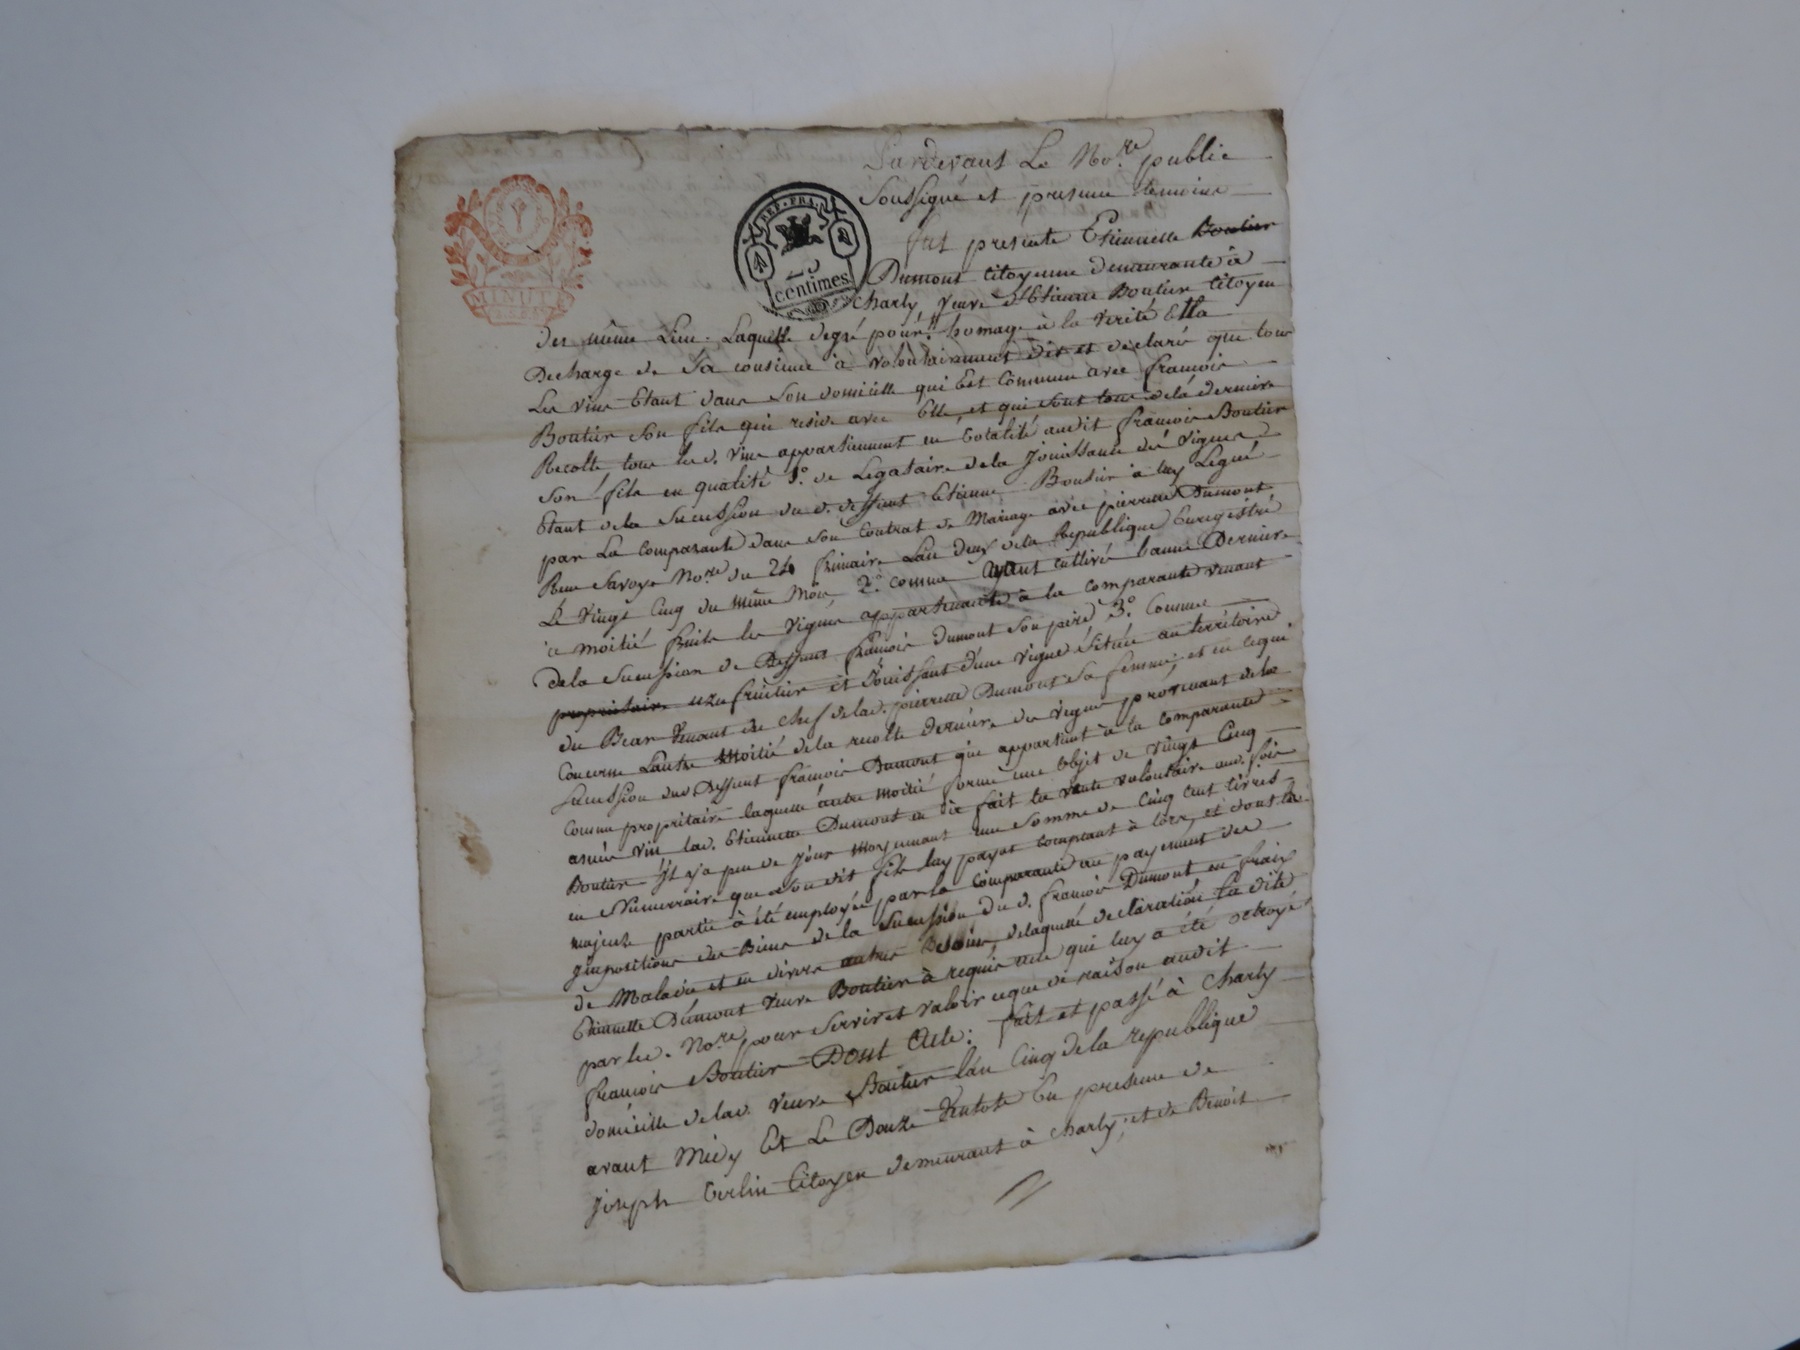 Pardevant Le No.re public
Soussigné et presence temoins
fut presente Etiennette Boutier
Dumont Citoyenne demeurante à
Charly, veuve d'Etienne Boutier Citoyen
REP. FRA.
25
centimes
MINUTE
Du même Lieu. Laquelle degré pour homage à la verité Et la
Decharge de Sa consience à volontairement dit et déclaré que tous
Les vins Etant dans Son domicille qui Est Commun avec françois
Boutier Son fils qui reside avec Elle, et qui sont tous de la derniere
Recolte tous led. vins appartiennent en totalité audit françois Boutier
Son fils en qualité 1.o de Legataire de la Jouissance des vignes
Etant de la Succession du d. deffunt Etienne Boutier à luy Legué
par La Comparante dans Son Contrat de Mariage avec pierrette Dumont
Reçu Savoye No.re du 24 frimaire L'an deux de la Republique Enregistré
Le Vingt Cinq du même Mois, 2.o comme ayant cultivé l'année Derniere
à moitié fruits les vignes appartenante à la comparante venant
de la Succession de Deffunt françois dumont Son pere, 3.o Comme
propriétaire usufruitier et Jouissant d'une vigne Située au territoire
du Bear venant du Chef de lad. pierrette Dumont Sa femme; et en ce qui
Concerne L'autre Moitié de la recolte derniere des vignes provenant de la
Succession dud. Deffunt françois Dumont qui appartient à la comparante
Comme propriétaire laquelle autre moitié forme une objet de vingt Cinq
anées vin lad. Etiennette Dumont en à fait la vente volontaire aud. fois
Boutier Il y a peu de Jours moyennant une Somme de Cinq Cent livres
en Numerraire que Sondit fils luy paya comptant à lors, et dont la
majeure partie à été employée par la Comparante au payement des
Impositions des Biens de la Succession du d. françois Dumont en fraix
de Maladie et en divers autres Besoins, de laquelle declaration la dite
Etiennette Dumont veuve Boutier à requis acte qui luy à été octroyé
par led. No.re pour Servir et valoir ce que de raison audit
françois Boutier Dont Acte: fait et passé à Charly
domicille de lad. veuve Boutier L'an Cinq de la republique
avant Midy Et Le Douze Ventose En presence de
Joseph Verlin Citoyen demeurant à Charly, et de Benoit